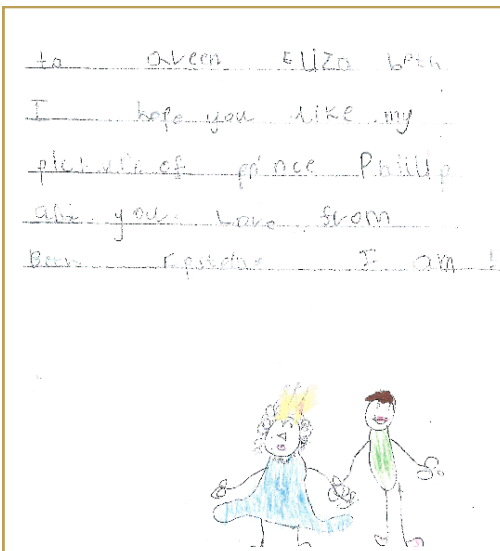 to Qveen Eliza beth
I hope you like my
of prince Phillip
you. Love from
I am !